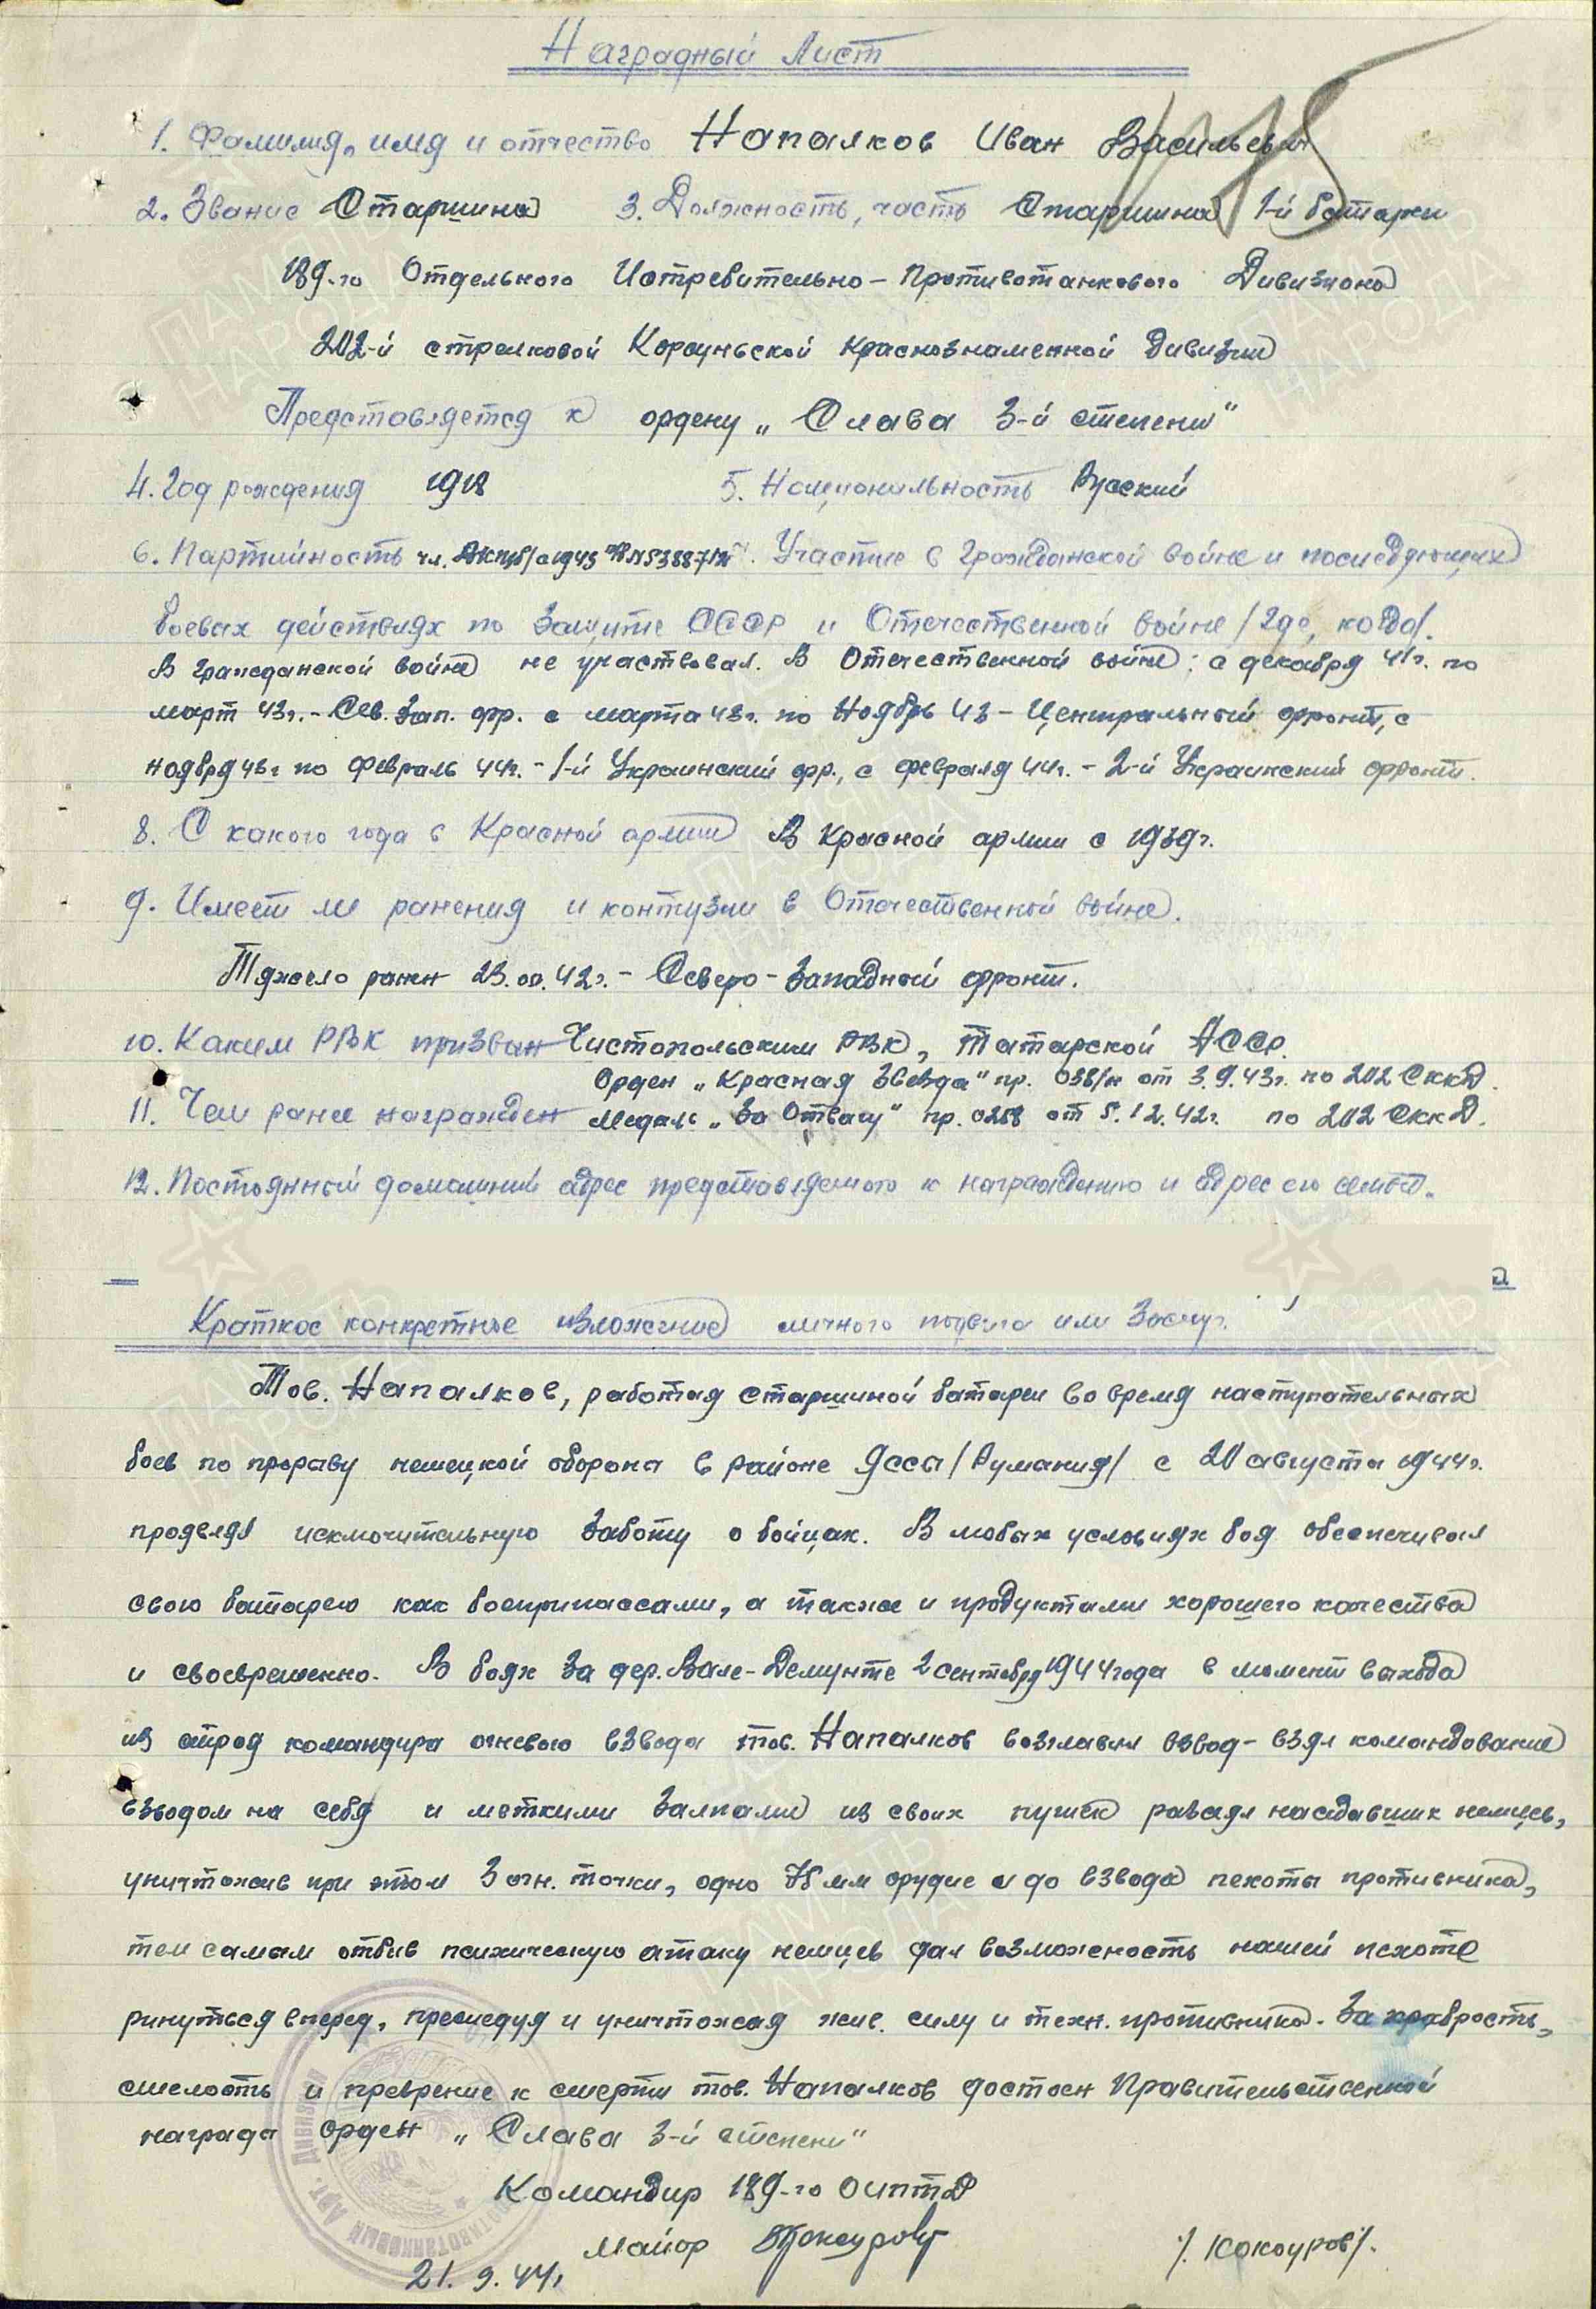 Наградный Лист
1. Фамилия, имя и отчество Напалков Иван Васильевич
2. Звание Старшина 3. Должность, часть Старшина 1-й батареи
189-го Отдельного Истребительно-Противотанкового Дивизиона
202-й стрелковой Корсуньской Краснознаменной Дивизии
Представляется к ордену „Слава 3-й степени"
4. Год рождения 1918 5. Национальность Русский
6. Партийность чл. ВКП/б/ с 1943 Участие в Гражданской войне и последующих
боевых действиях по защите СССР и Отечественной войне /где, когда/.
В гражданской войне не участвовал. В Отечественной войне; с декабря 41г. по
март 43г. - Сев. Зап. фр. с марта 43г. по Ноябрь 43 - Центральный фронт, с
ноября 43г по Февраль 44г. - 1-й Украинский фр., с февраля 44г. - 2-й Украинский фронт.
8. С какого года в Красной армии В Красной армии с 1939г.
9. Имеет ли ранения и контузии в Отечественной войне.
Тяжело ранен 42г. - Северо-Западный фронт.
10. Каким РВК призван Чистопольским РВК, Татарской АССР.
Орден „Красная Звезда" пр. 038/н от 3.9.43г. по 202 СккД.
11. Чем ранее награжден Медаль „За Отвагу" пр. 0258 от 5.12.42г. по 202 СккД.
12. Постоянный домашний адрес представляемого к награждению и адрес его семьи.
Краткое конкретное изложение личного подвига или заслуг.
Тов. Напалков, работая старшиной батареи во время наступательных
боев по прорыву немецкой обороны в районе Яссы /Румыния/ с 20 августа 1944г.
проявлял исключительную заботу о бойцах. В любых условиях боя обеспечивал
свою батарею как боеприпассами, а также и продуктами хорошего качества
и своевременно. В боях за дер. Вале-Демунте 2 сентября 1944 года в момент выхода
из строя командира огневого взвода тов. Напалков возглавил взвод - взял командование
взводом на себя и меткими залпами из своих пушек разил наседавших немцев,
уничтожив при этом 3 огн. точки, одно 75 мм орудие и до взвода пехоты противника,
тем самым отбив психическую атаку немцев дал возможность нашей пехоте
ринуться вперед, преследуя и уничтожая жив. силу и техн. противника. За храбрость,
смелость и презрение к смерти тов. Напалков достоен Правительственной
награды орден „Слава 3-й степени"
Командир 189-го ОИПТД
Майор /Кокоуров/.
21.9.44г